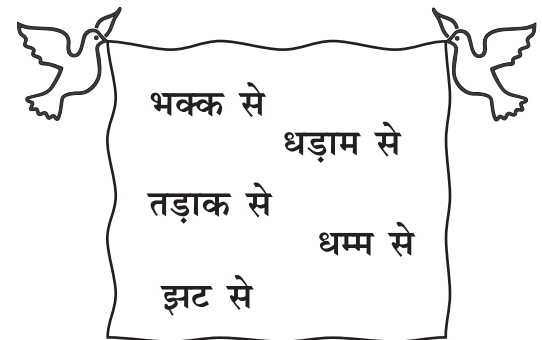 भक्क से
धड़ाम से
तड़ाक से
धम्म से
झट से